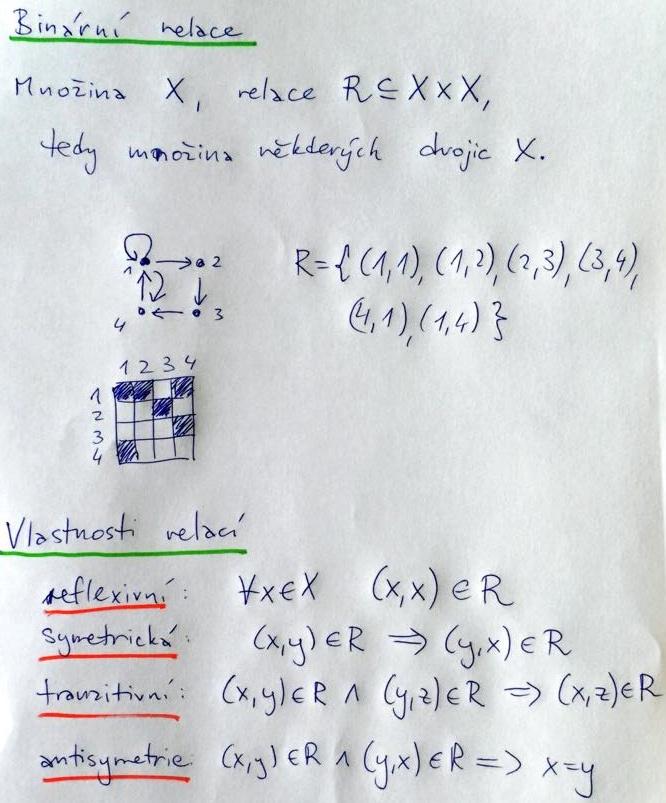 Binární relace
Množina X, relace R ⊆ X × X,
tedy množina některých dvojic X.
1 2
4 3
R = { (1,1), (1,2), (2,3), (3,4),
(4,1), (1,4) }
1 2 3 4
1
2
3
4
Vlastnosti relací
reflexivní: ∀x∈X (x,x) ∈ R
symetrická: (x,y) ∈ R ⇒ (y,x) ∈ R
tranzitivní: (x,y) ∈ R ∧ (y,z) ∈ R ⇒ (x,z) ∈ R
antisymetrie: (x,y) ∈ R ∧ (y,x) ∈ R => x=y